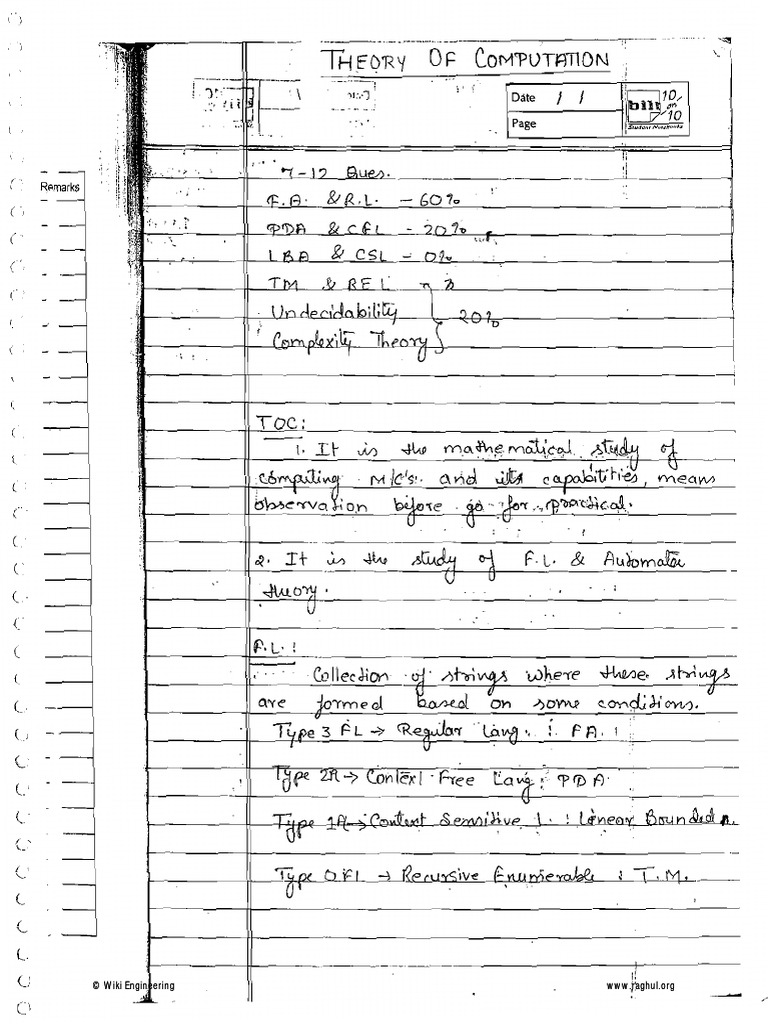 THEORY OF COMPUTATION
Date / /
Page
bilt 10 on 10
Student Notebooks
Remarks
7-12 Ques.
F.A. & R.L. - 60%
PDA & CFL - 20%
LBA & CSL - 0%
TM & REL
Undecidability 20%
Complexity Theory
TOC:
1. It is the mathematical study of
computing M/C's. and its capabitities, means
observation before go for practical.
2. It is the study of F.L. & Automata
theory.
F.L. :
Collection of strings where these strings
are formed based on some conditions.
Type 3 FL → Regular Lang. : FA.
Type 2 → Context Free Lang : PDA
Type 1 → Context Sensitive L. : Linear Bounded A.
Type 0 FL → Recursive Enumerable : T.M.
© Wiki Engineering
www.raghul.org